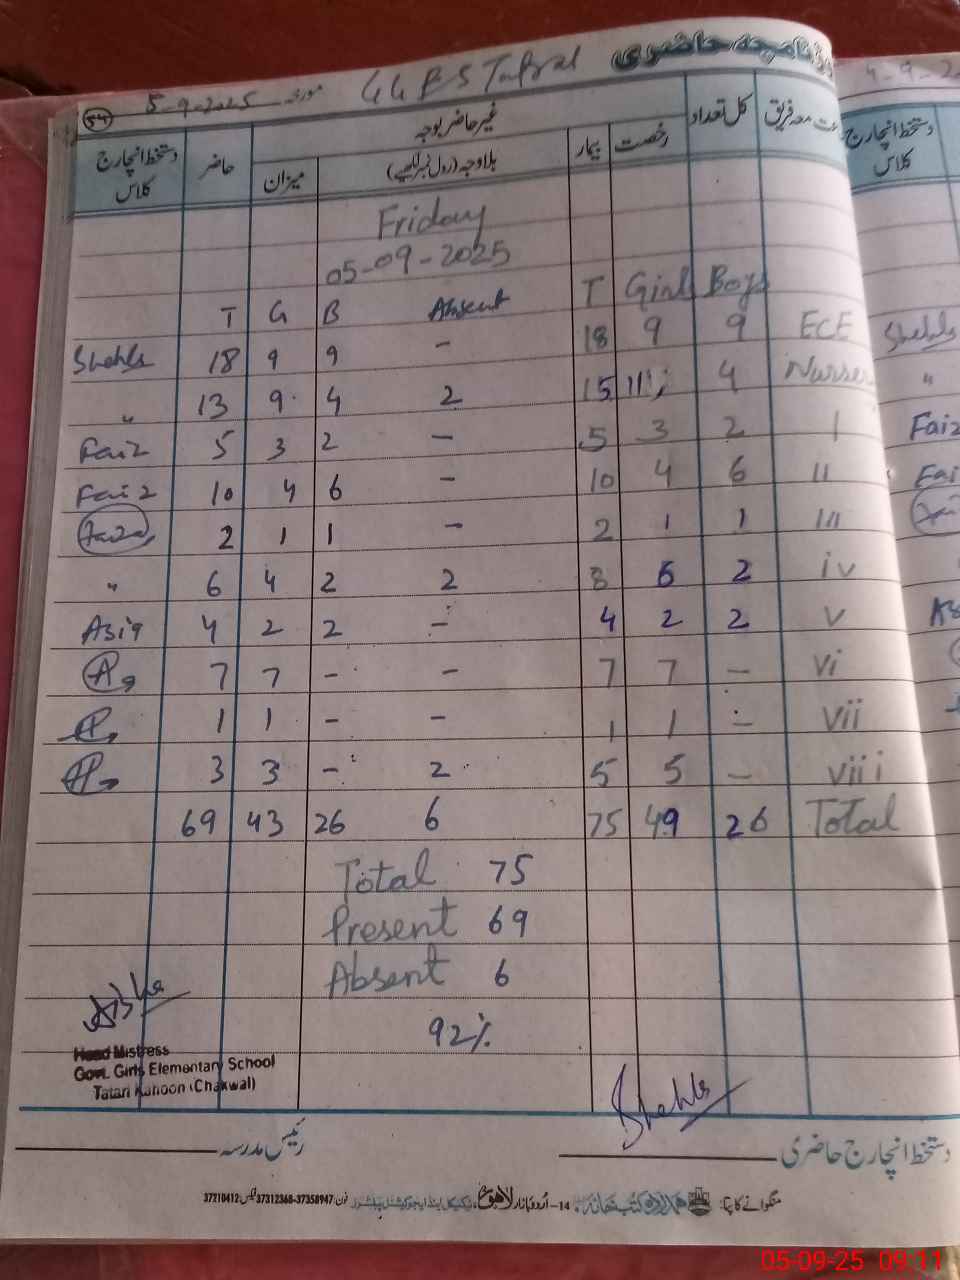 روزنامچہ حاضری
GGES Tatral
5-9-2025 مورخہ
54
4-9-2
جماعت معہ فریق کل تعداد رخصت بیمار غیر حاضر بوجہ بلاوجہ (رول نمبر لکھیے) میزان حاضر دستخط انچارج کلاس
دستخط انچارج کلاس
Friday
05-09-2025
T G B Absent T Girls Boys
Shehla 18 9 9 - 18 9 9 ECE
" 13 9 4 2 15 11 4 Nursery
Faiz 5 3 2 - 5 3 2 I
Faiz 10 4 6 - 10 4 6 II
2 1 1 - 2 1 1 III
" 6 4 2 2 8 6 2 iv
Asia 4 2 2 - 4 2 2 v
7 7 - - 7 7 - vi
1 1 - - 1 1 - vii
3 3 - 2 5 5 - viii
69 43 26 6 75 49 26 Total
Total 75
Present 69
Absent 6
92%
Head Mistress
Govt. Girls Elementary School
Tatari Kahoon (Chakwal)
Shehla
دستخط انچارج حاضری رئیس مدرسہ
منگوانے کا پتہ: 14-اُردو بازار لاہور فون: 37358947-37312368 فیکس: 37210412
Shehla
"
Faiz
Fai
05-09-25 09:11